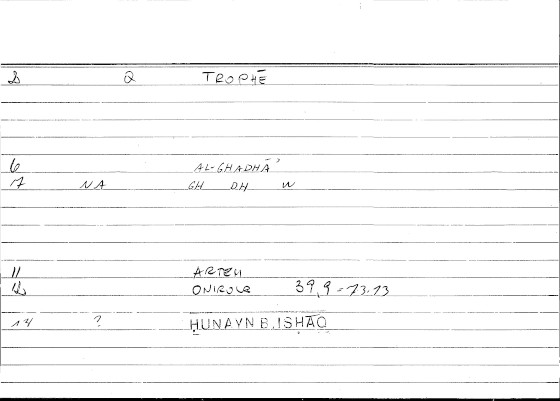 2 Q TROPHĒ
6 AL-GHADHĀʾ
7 NA GH DH W
11 ARTEM
12 ONIROCR 39,9 = 73.13
14 ? ḤUNAYN B. ISḤĀQ